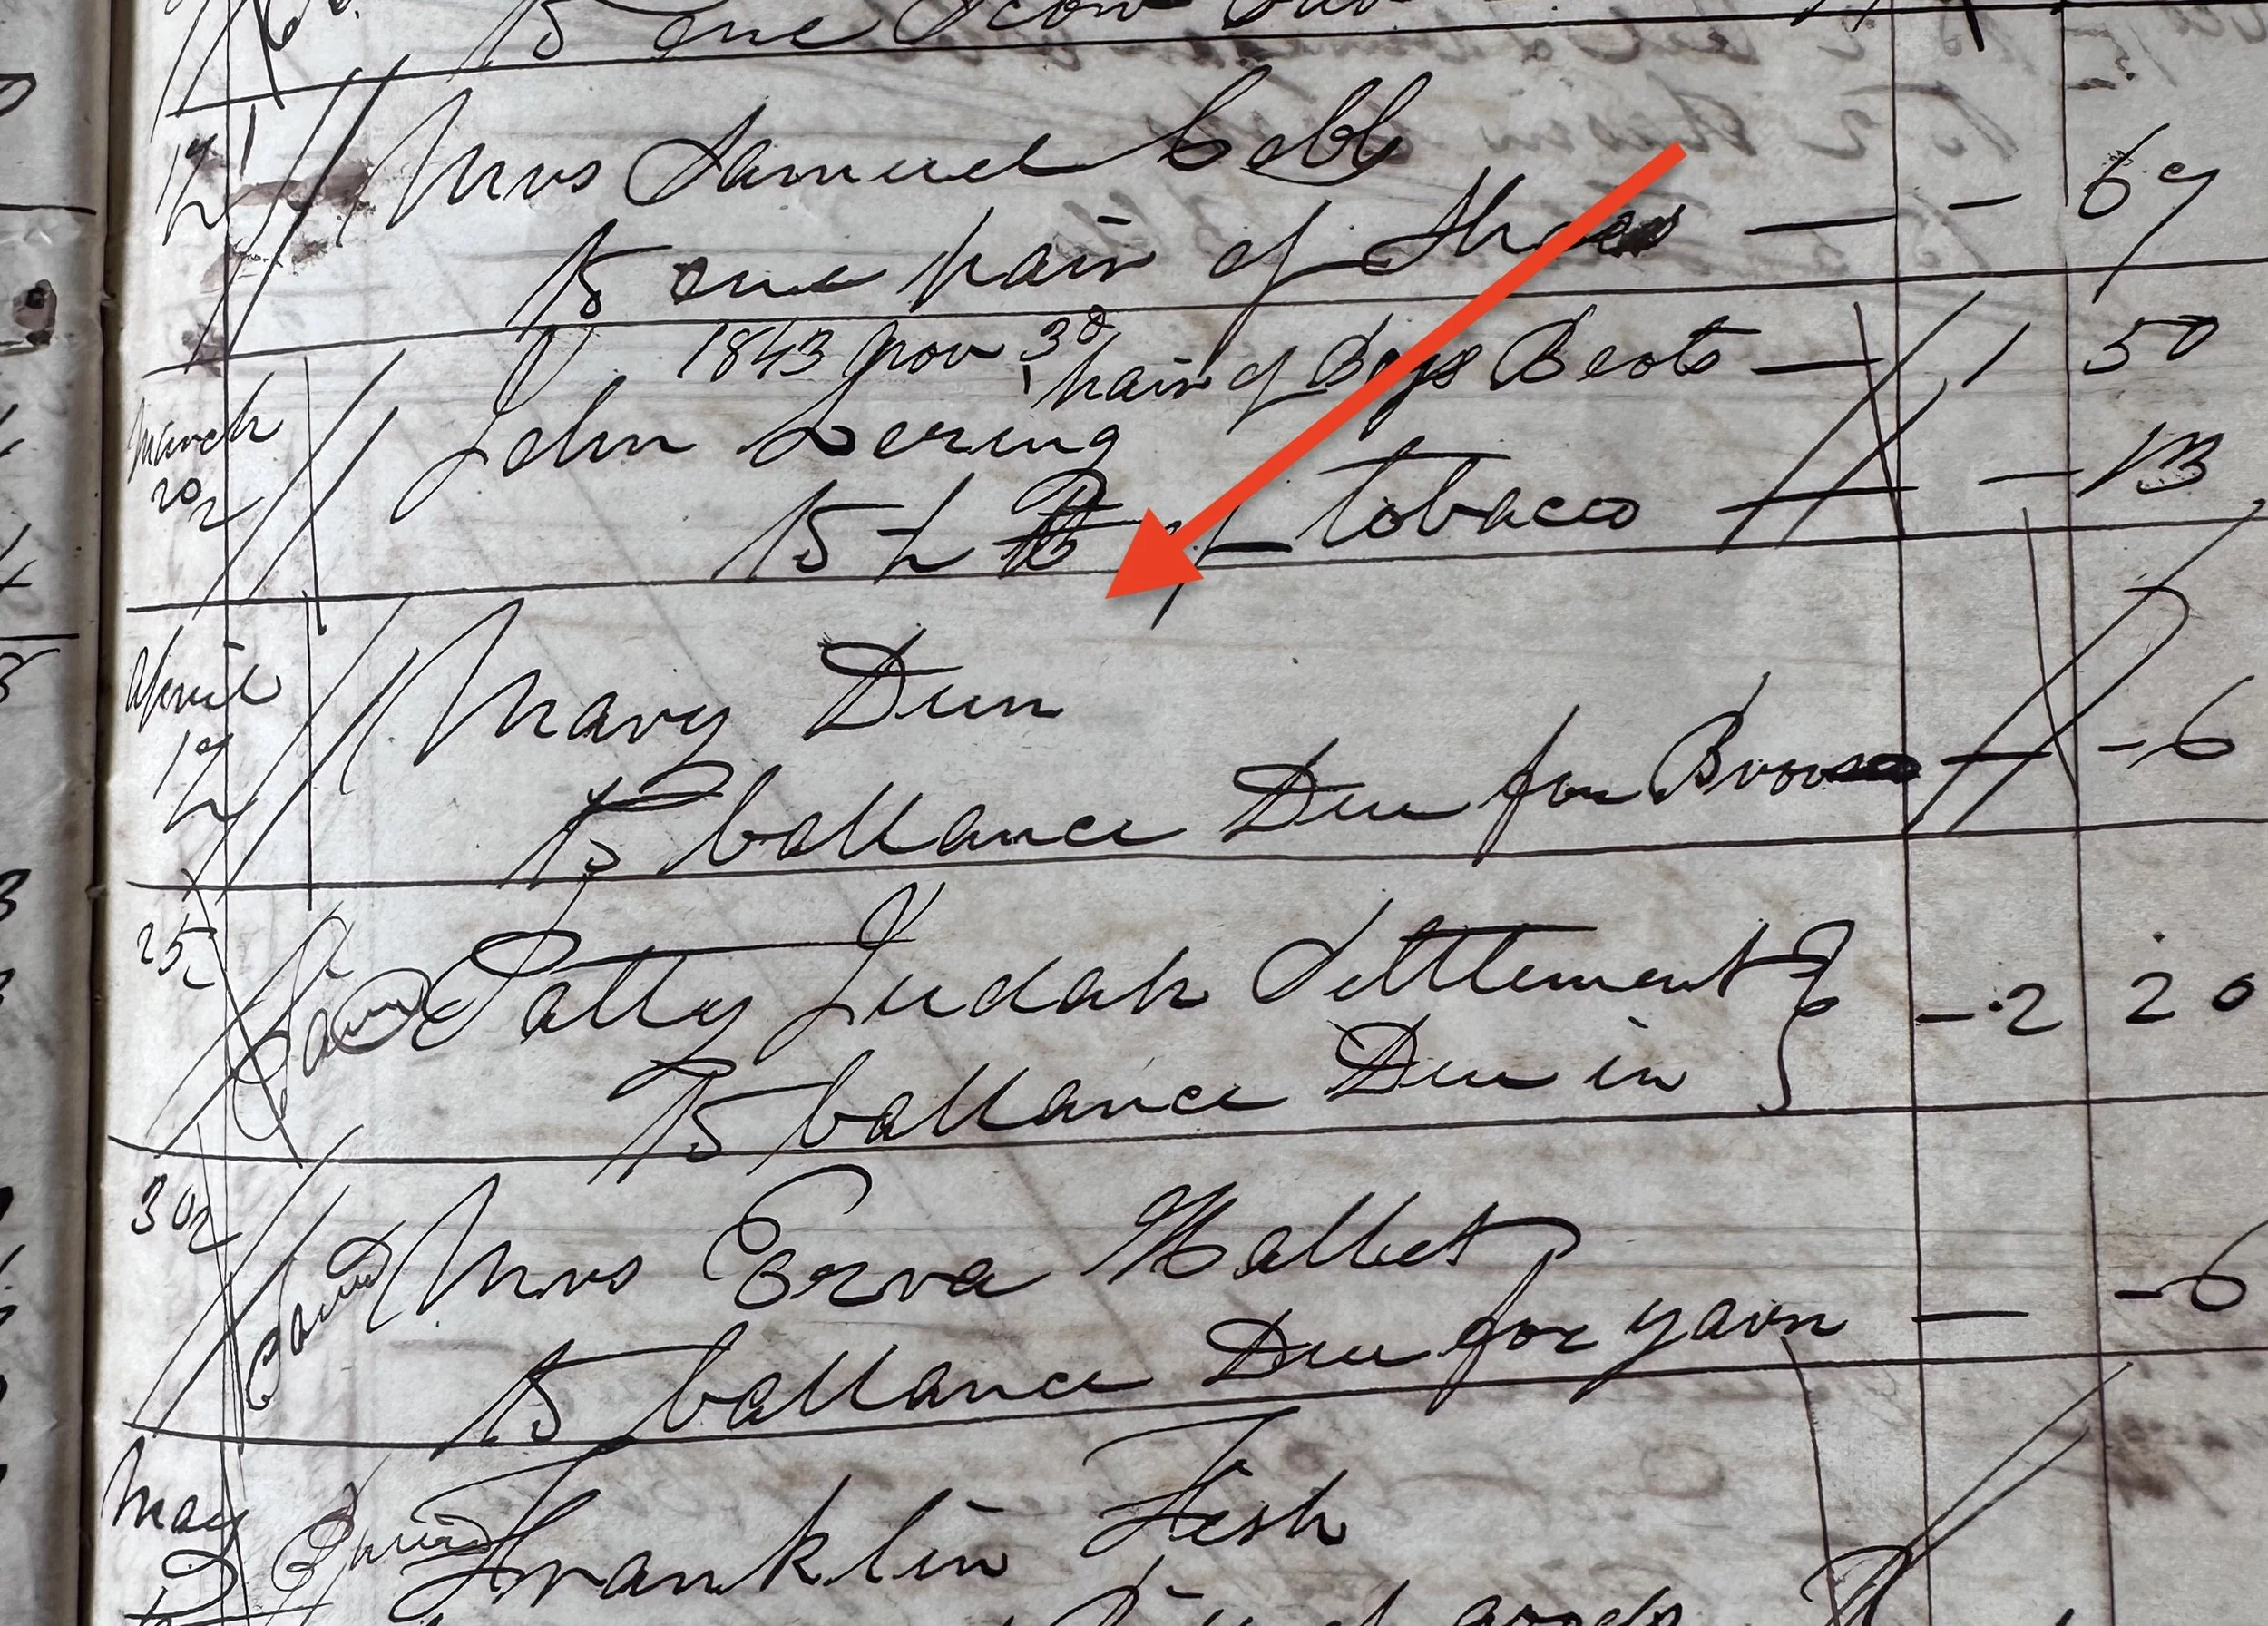 To one
17 Mrs Samuel Cobb
To one pair of Shoes — - 67
1843 Nov 30 pair of Boys Boots — 1 50
March 20 John Loring
To ½ lb of tobacco - 13
April 17 Mary Dun
To ballance Due for Broom - 6
25 Patty Judah Settlement
To ballance Due in - 2 20
30 Paid Mrs Ezra Hallet
To ballance Due for yarn — - 6
May Paid Franklin Fish
goods